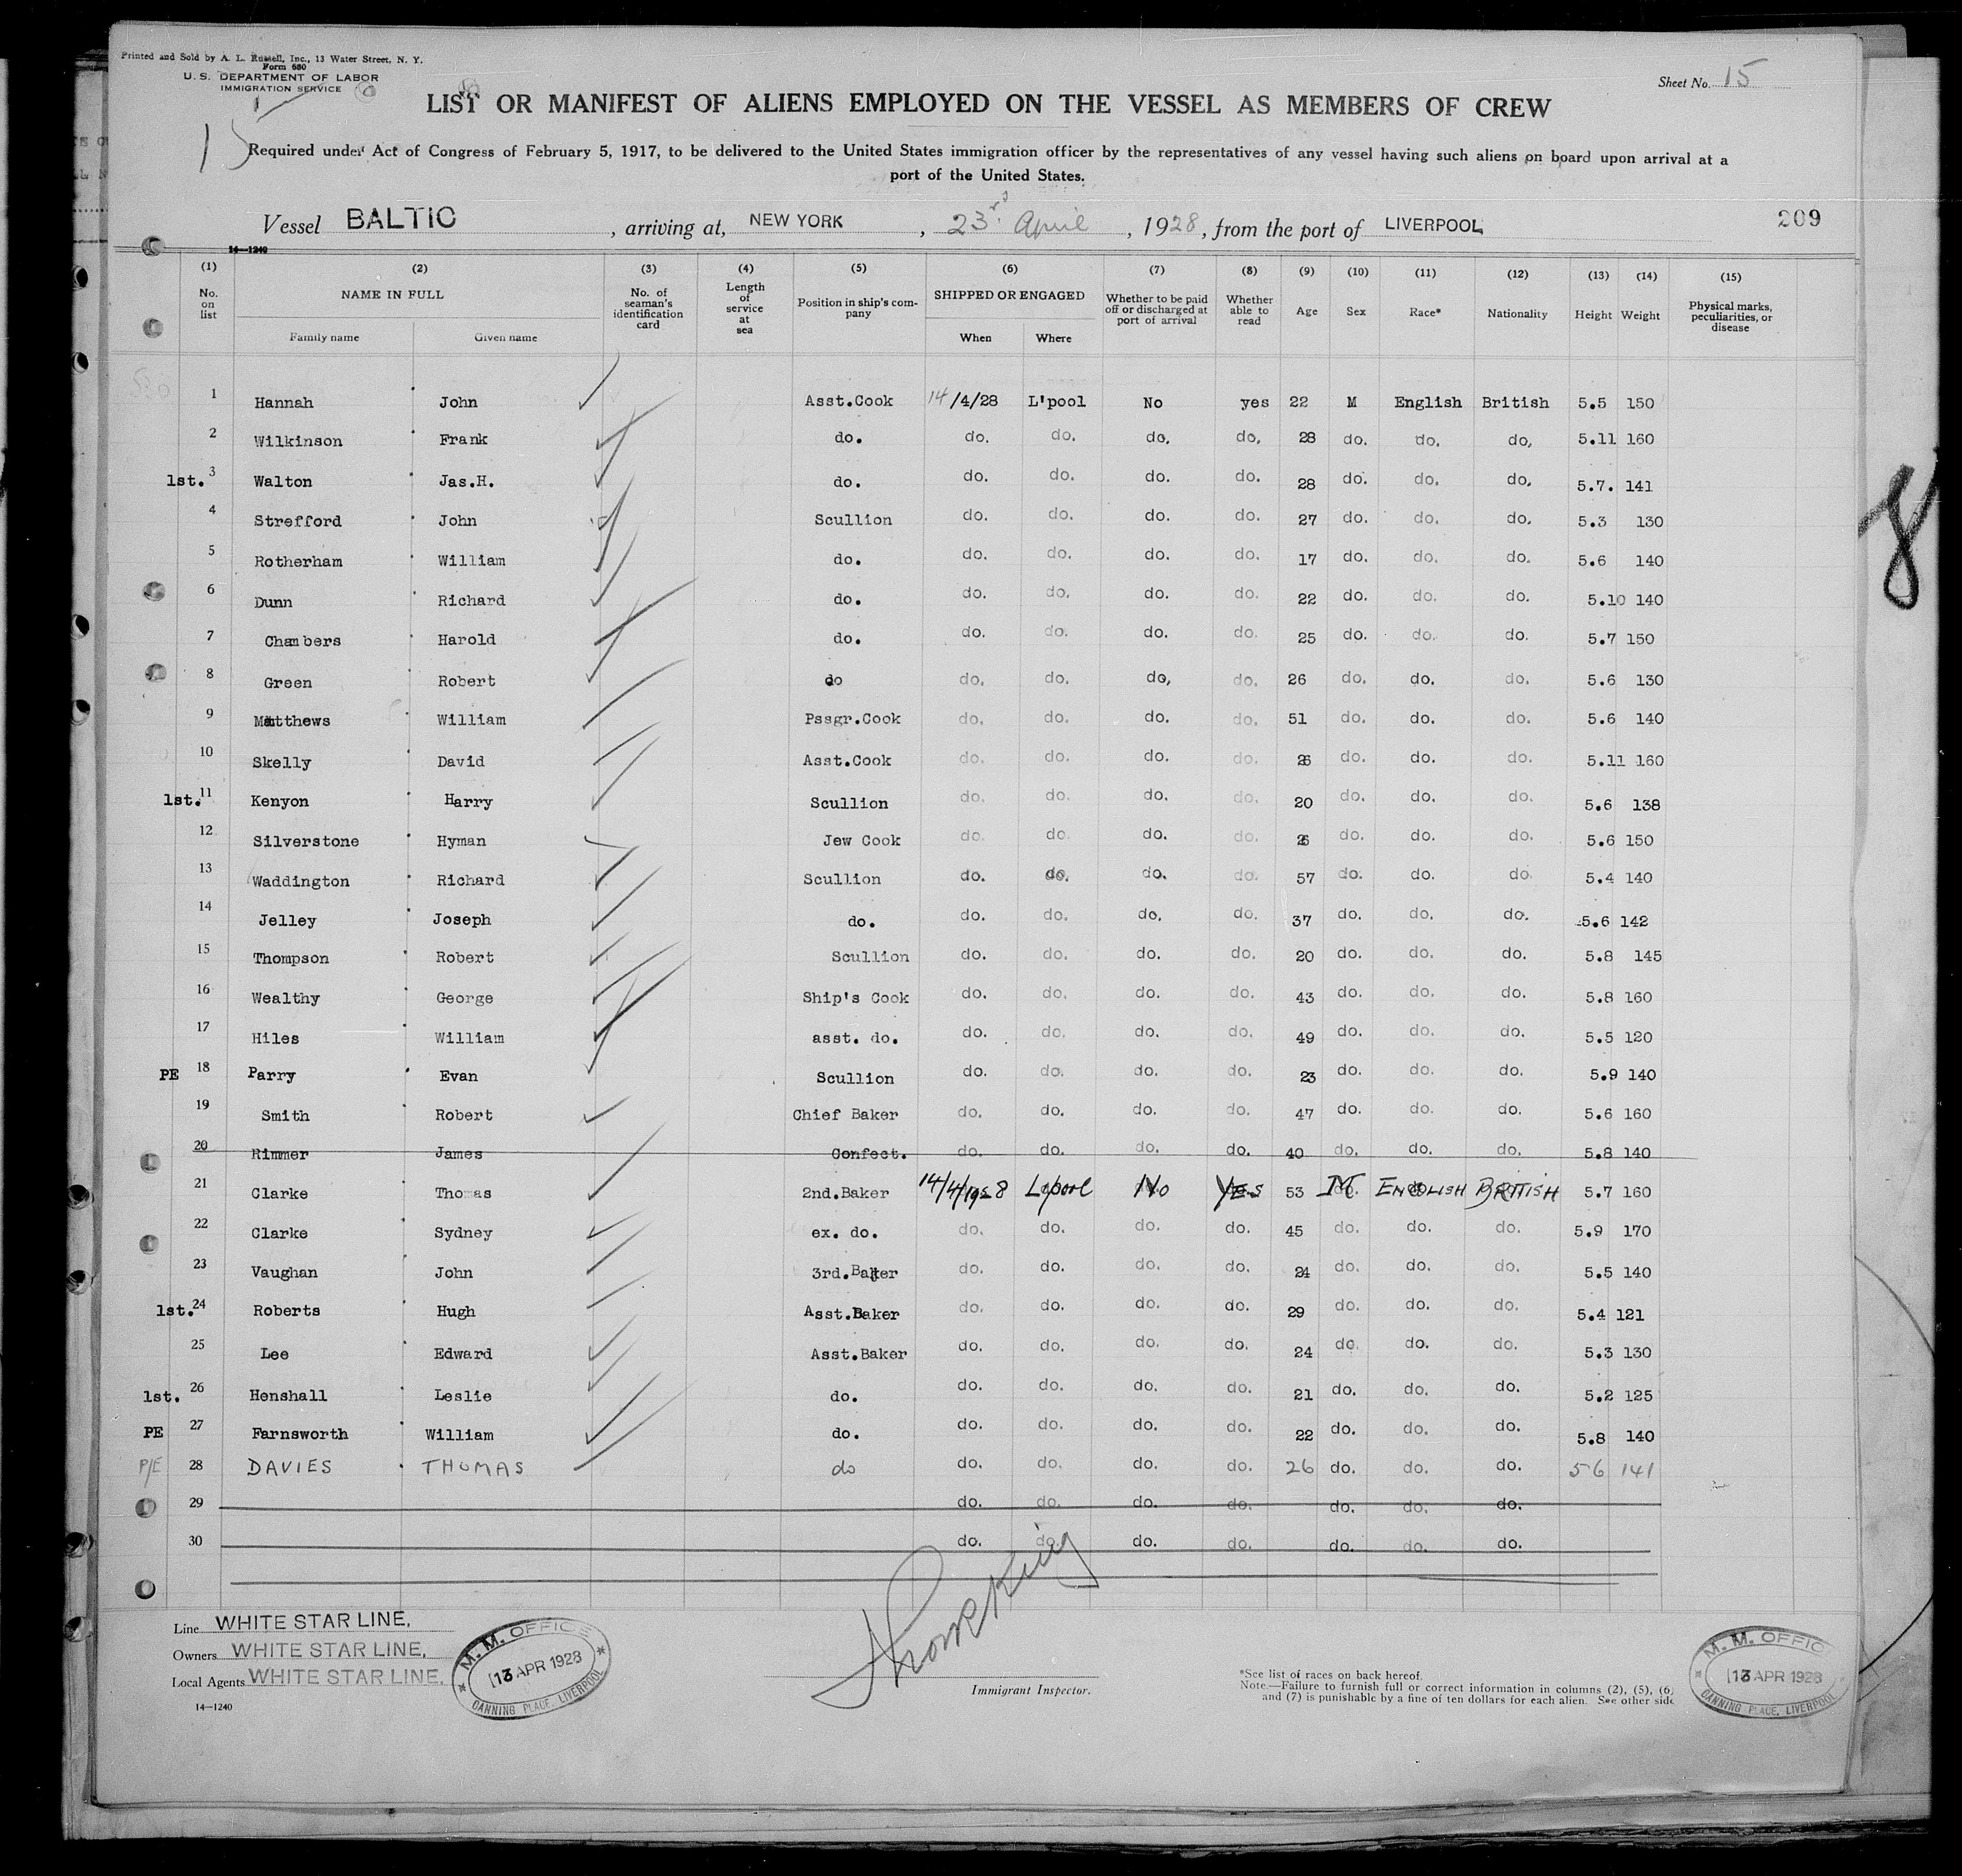 Printed and Sold by A. L. Russell, Inc., 13 Water Street, N. Y.
Form 680
U. S. DEPARTMENT OF LABOR
IMMIGRATION SERVICE
Sheet No. 15
LIST OR MANIFEST OF ALIENS EMPLOYED ON THE VESSEL AS MEMBERS OF CREW
15
Required under Act of Congress of February 5, 1917, to be delivered to the United States immigration officer by the representatives of any vessel having such aliens on board upon arrival at a
port of the United States.
Vessel BALTIC, arriving at, NEW YORK, 23rd April, 1928, from the port of LIVERPOOL 209
14—1240
(1) (2) (3) (4) (5) (6) (7) (8) (9) (10) (11) (12) (13) (14) (15)
No. on list NAME IN FULL No. of seaman's identification card Length of service at sea Position in ship's company SHIPPED OR ENGAGED Whether to be paid off or discharged at port of arrival Whether able to read Age Sex Race* Nationality Height Weight Physical marks, peculiarities, or disease
Family name Given name When Where
1 Hannah John Asst.Cook 14/4/28 L'pool No yes 22 M English British 5.5 150
2 Wilkinson Frank do. do. do. do. do. 28 do. do. do. 5.11 160
1st. 3 Walton Jas.H. do. do. do. do. do. 28 do. do. do. 5.7. 141
4 Strefford John Scullion do. do. do. do. 27 do. do. do. 5.3 130
5 Rotherham William do. do. do. do. do. 17 do. do. do. 5.6 140
6 Dunn Richard do. do. do. do. do. 22 do. do. do. 5.10 140
7 Chambers Harold do. do. do. do. do. 25 do. do. do. 5.7 150
8 Green Robert do do. do. do. do. 26 do. do. do. 5.6 130
9 Matthews William Pssgr.Cook do. do. do. do. 51 do. do. do. 5.6 140
10 Skelly David Asst.Cook do. do. do. do. do. do. do. 5.11 160
1st. 11 Kenyon Harry Scullion do. do. do. do. 20 do. do. do. 5.6 138
12 Silverstone Hyman Jew Cook do. do. do. do. do. do. do. 5.6 150
13 Waddington Richard Scullion do. do. do. do. 57 do. do. do. 5.4 140
14 Jelley Joseph do. do. do. do. do. 37 do. do. do. 5.6 142
15 Thompson Robert Scullion do. do. do. do. 20 do. do. do. 5.8 145
16 Wealthy George Ship's Cook do. do. do. do. 43 do. do. do. 5.8 160
17 Hiles William asst. do. do. do. do. do. 49 do. do. do. 5.5 120
PE 18 Parry Evan Scullion do. do. do. do. 23 do. do. do. 5.9 140
19 Smith Robert Chief Baker do. do. do. do. 47 do. do. do. 5.6 160
20 Rimmer James Confect. do. do. do. do. 40 do. do. do. 5.8 140
21 Clarke Thomas 2nd.Baker 14/4/1928 L'pool No YES 53 M ENGLISH BRITISH 5.7 160
22 Clarke Sydney ex. do. do. do. do. do. 45 do. do. do. 5.9 170
23 Vaughan John 3rd.Baker do. do. do. do. 24 do. do. do. 5.5 140
1st. 24 Roberts Hugh Asst.Baker do. do. do. do. 29 do. do. do. 5.4 121
25 Lee Edward Asst.Baker do. do. do. do. 24 do. do. do. 5.3 130
1st. 26 Henshall Leslie do. do. do. do. do. 21 do. do. do. 5.2 125
PE 27 Farnsworth William do. do. do. do. do. 22 do. do. do. 5.8 140
P/E 28 DAVIES THOMAS do do. do. do. do. 26 do. do. do. 5 6 141
29 do. do. do. do. do. do. do.
30 do. do. do. do. do. do. do.
Line WHITE STAR LINE.
Owners WHITE STAR LINE.
Local Agents WHITE STAR LINE.
14—1240
M. M. OFFICE
13 APR 1928
CANNING PLACE, LIVERPOOL
Immigrant Inspector.
*See list of races on back hereof.
Note.—Failure to furnish full or correct information in columns (2), (5), (6)
and (7) is punishable by a fine of ten dollars for each alien. See other side
M. M. OFFIC
13 APR 1928
CANNING PLACE, LIVERPOOL
8